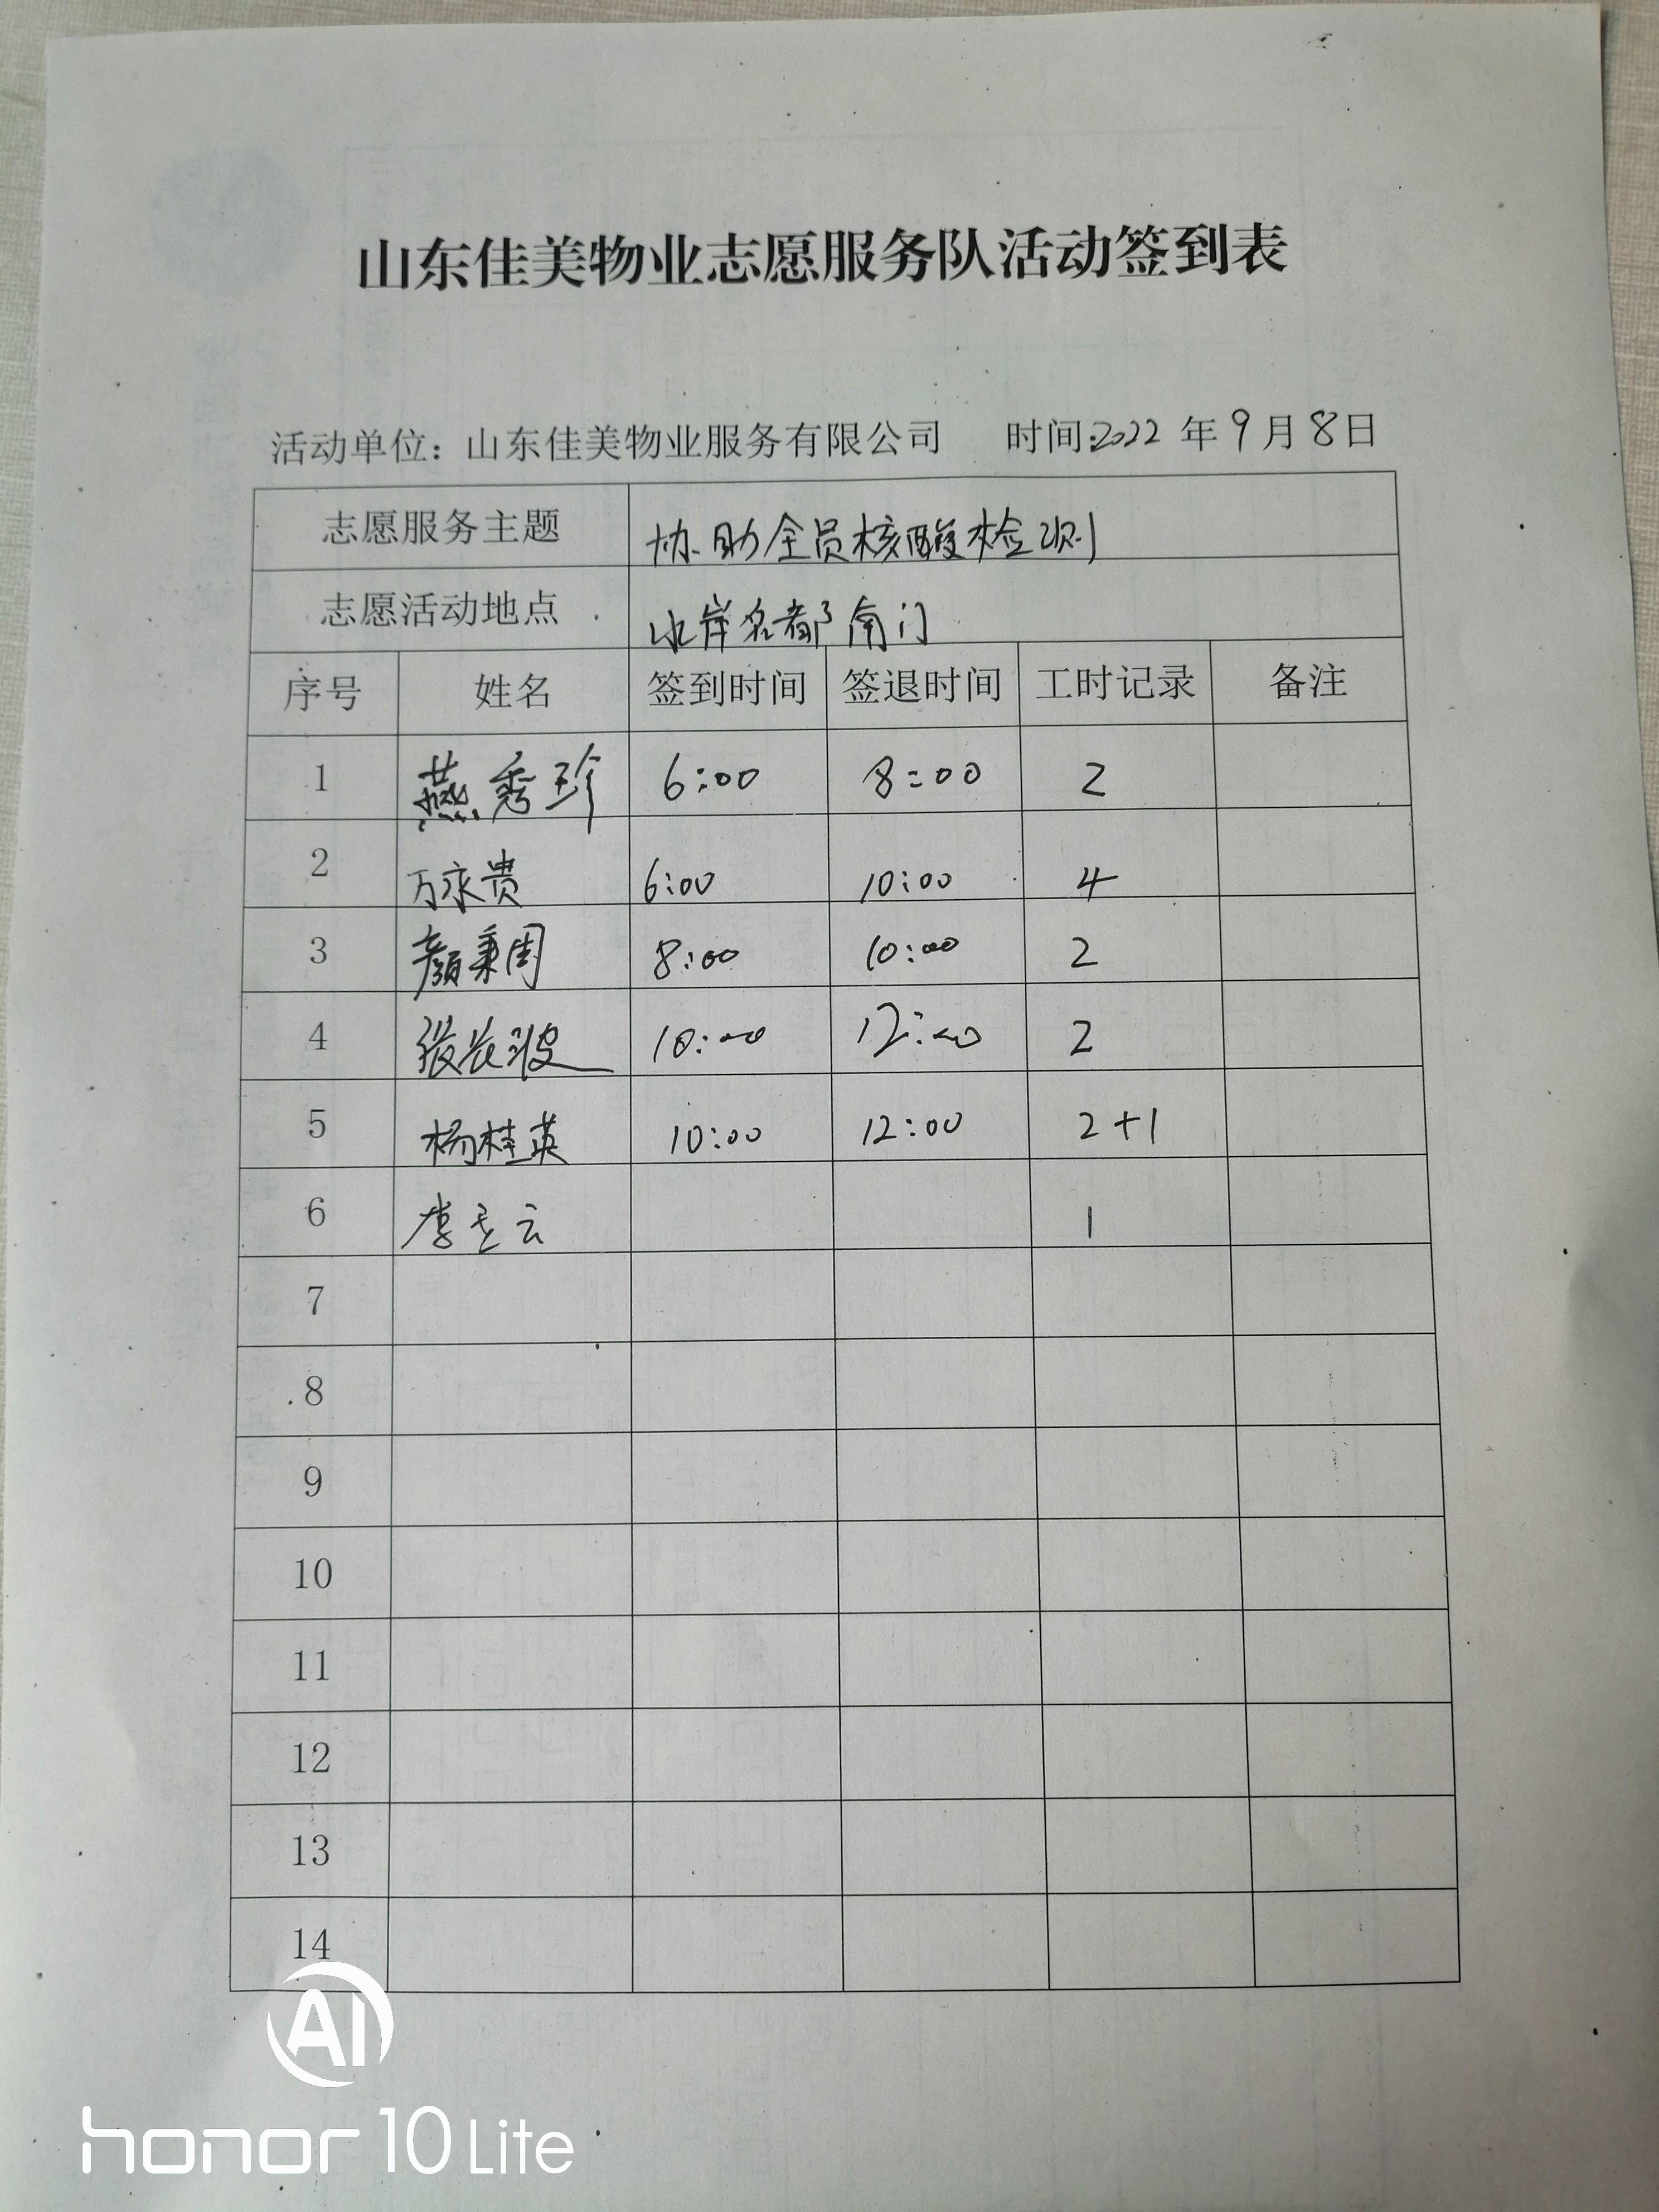 山东佳美物业志愿服务队活动签到表
活动单位：山东佳美物业服务有限公司 时间:2022年9月8日
志愿服务主题 协助全员核酸检测
志愿活动地点 水岸名都南门
序号 姓名 签到时间 签退时间 工时记录 备注
1 燕秀珍 6:00 8:00 2
2 万永贵 6:00 10:00 4
3 颜秉周 8:00 10:00 2
4 张长波 10:00 12:00 2
5 杨桂英 10:00 12:00 2+1
6 李云 1
7
8
9
10
11
12
13
14
AI
honor 10 Lite